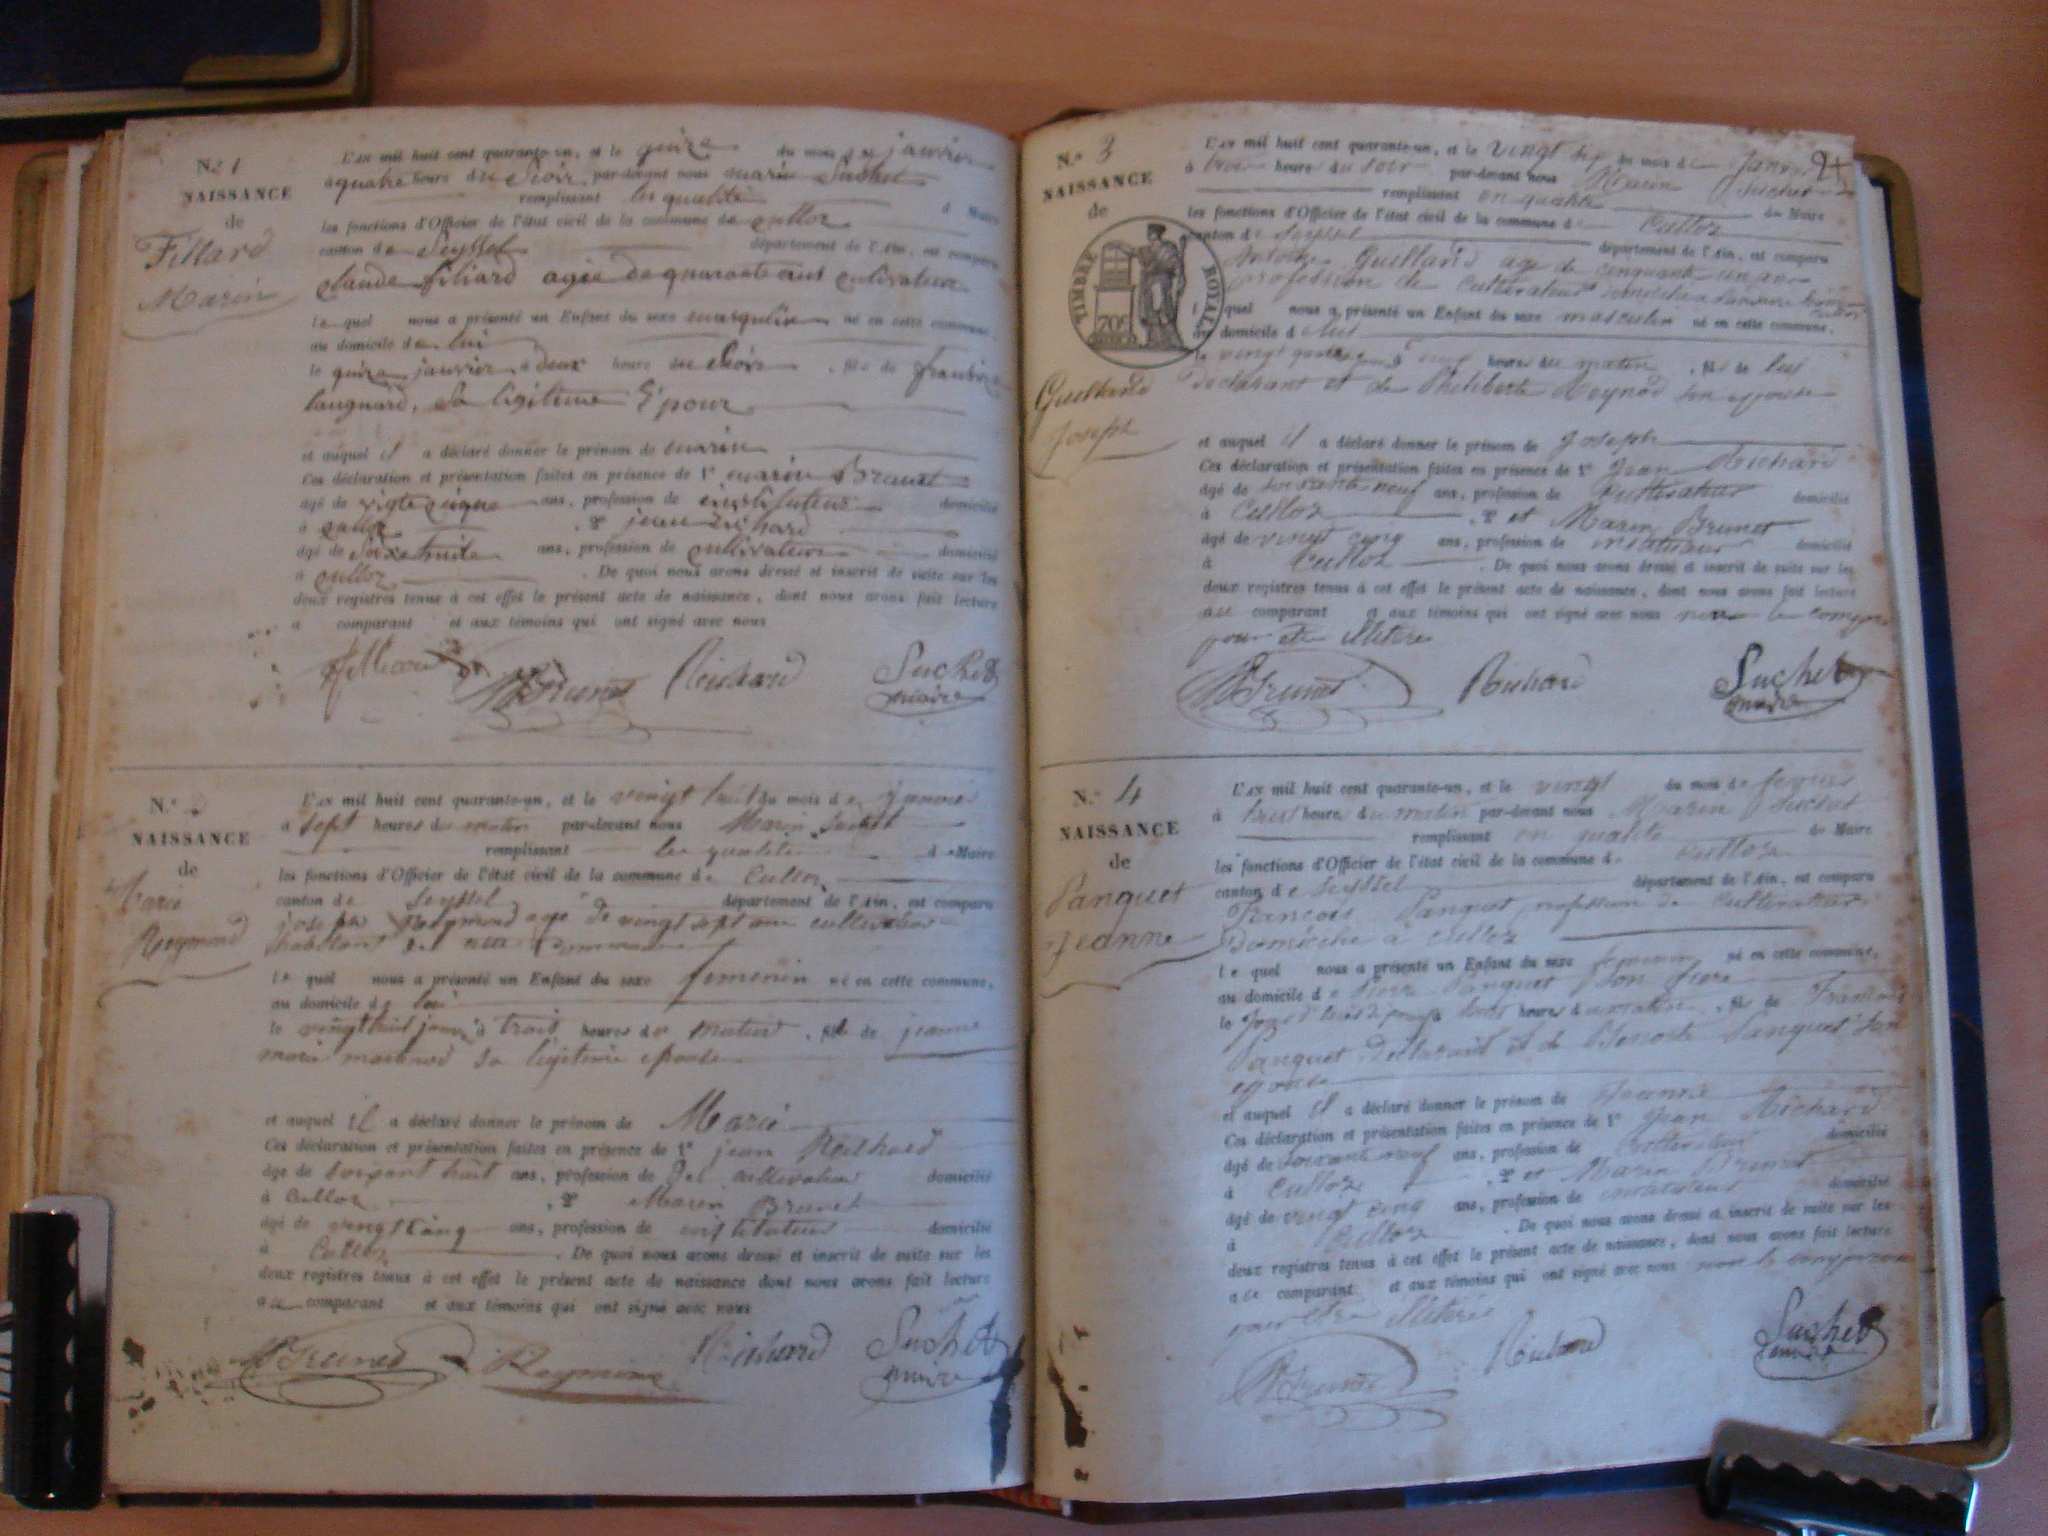 N.º 1
NAISSANCE
de
Fillard
Marin
L'AN mil huit cent quarante-un, et le quinze du mois de janvier
à quatre heure du Soir par-devant nous marin Suchet
remplissant les qualité d Maire
les fonctions d'Officier de l'état civil de la commune de culloz
canton de Seyssel département de l'Ain, est comparu
claude filiard agée de quarante ans cultivateur
le quel nous a présenté un Enfant du sexe masqulin né en cette commune,
au domicile de lui
le quinze janvier à deux heure du Soir, fils de
sa légitime Epouse
et auquel il a déclaré donner le prénom de marin
Ces déclaration et présentation faites en présence de 1º marin Brunet
âgé de vigt cinque ans, profession de instituteur domicilié
à culloz , 2º jean richard
âgé de ans, profession de cultivateur domicilié
à culloz . De quoi nous avons dressé et inscrit de suite sur les
deux registres tenus à cet effet le présent acte de naissance, dont nous avons fait lecture
a comparant et aux témoins qui ont signé avec nous
MBrunet Richard Suchet
maire
N.º 2
NAISSANCE
de
Marie
Reymond
L'AN mil huit cent quarante-un, et le vingt huit du mois de janvier
à sept heures du matin par-devant nous Marin Suchet
remplissant les qualité de Maire
les fonctions d'Officier de l'état civil de la commune de Culloz
canton de Seyssel département de l'Ain, est comparu
joseph Reymond agé de vingt sept ans cultivateur
habitant de cette commune
le quel nous a présenté un Enfant du sexe femenin né en cette commune,
au domicile de lui
le vingt huit à trois heures du matin, fille de jeanne
marie sa légitime epouse
et auquel il a déclaré donner le prénom de Marie
Ces déclaration et présentation faites en présence de 1º jean Richard
âgé de soixant huit ans, profession de cultivateur domicilié
à Culloz , 2º Marin Brunet
âgé de vingt cinq ans, profession de instituteur domicilié
à Culloz . De quoi nous avons dressé et inscrit de suite sur les
deux registres tenus à cet effet le présent acte de naissance dont nous avons fait lecture
au comparant et aux témoins qui ont signé avec nous
MBrunet Reymond Richard Suchet
maire
N.º 3
NAISSANCE
de
TIMBRE ROYAL
70c
Guilland
Joseph
L'AN mil huit cent quarante-un, et le vingt du mois de Janvier
à trois heure du soir par-devant nous Marin Suchet
remplissant en qualité de Maire
les fonctions d'Officier de l'état civil de la commune de Culloz
canton de Seyssel département de l'Ain, est comparu
Antoine Guilland age de cinquante un an
profession de Cultivateur
le quel nous a présenté un Enfant du sexe masculin né en cette commune,
au domicile de lui
le vingt à neuf heures du matin, fils de lui
déclarant et de Philiberte Reynod son epouse
et auquel il a déclaré donner le prénom de Joseph
Ces déclaration et présentation faites en présence de 1º Jean Richard
âgé de soixante neuf ans, profession de Cultivateur domicilié
à Culloz , 2º et Marin Brunet
âgé de vingt cinq ans, profession de instituteur domicilié
à Culloz . De quoi nous avons dressé et inscrit de suite sur les
deux registres tenus à cet effet le présent acte de naissance, dont nous avons fait lecture
au comparant et aux témoins qui ont signé avec nous non le
pour etre illitéré
MBrunet Richard Suchet
maire
N.º 4
NAISSANCE
de
Panquet
Jeanne
L'AN mil huit cent quarante-un, et le vingt du mois de fevrier
à huit heure du matin par-devant nous Marin Suchet
remplissant en qualité de Maire
les fonctions d'Officier de l'état civil de la commune de Culloz
canton de Seyssel département de l'Ain, est comparu
François Panquet profession de Cultivateur
domicilié à culloz
le quel nous a présenté un Enfant du sexe feminin né en cette commune,
au domicile de Pierre Panquet son frere
le heures du matin, fille de François
Panquet déclarant et de Benoite Panquet son
epouse
et auquel il a déclaré donner le prénom de Jeanne
Ces déclaration et présentation faites en présence de 1º Jean Richard
âgé de soixante neuf ans, profession de Cultivateur domicilié
à Culloz , 2º et Marin Brunet
âgé de vingt cinq ans, profession de instituteur domicilié
à Culloz . De quoi nous avons dressé et inscrit de suite sur les
deux registres tenus à cet effet le présent acte de naissance, dont nous avons fait lecture
au comparant et aux témoins qui ont signé avec nous non le comparant
pour etre illitéré
MBrunet Richard Suchet
maire